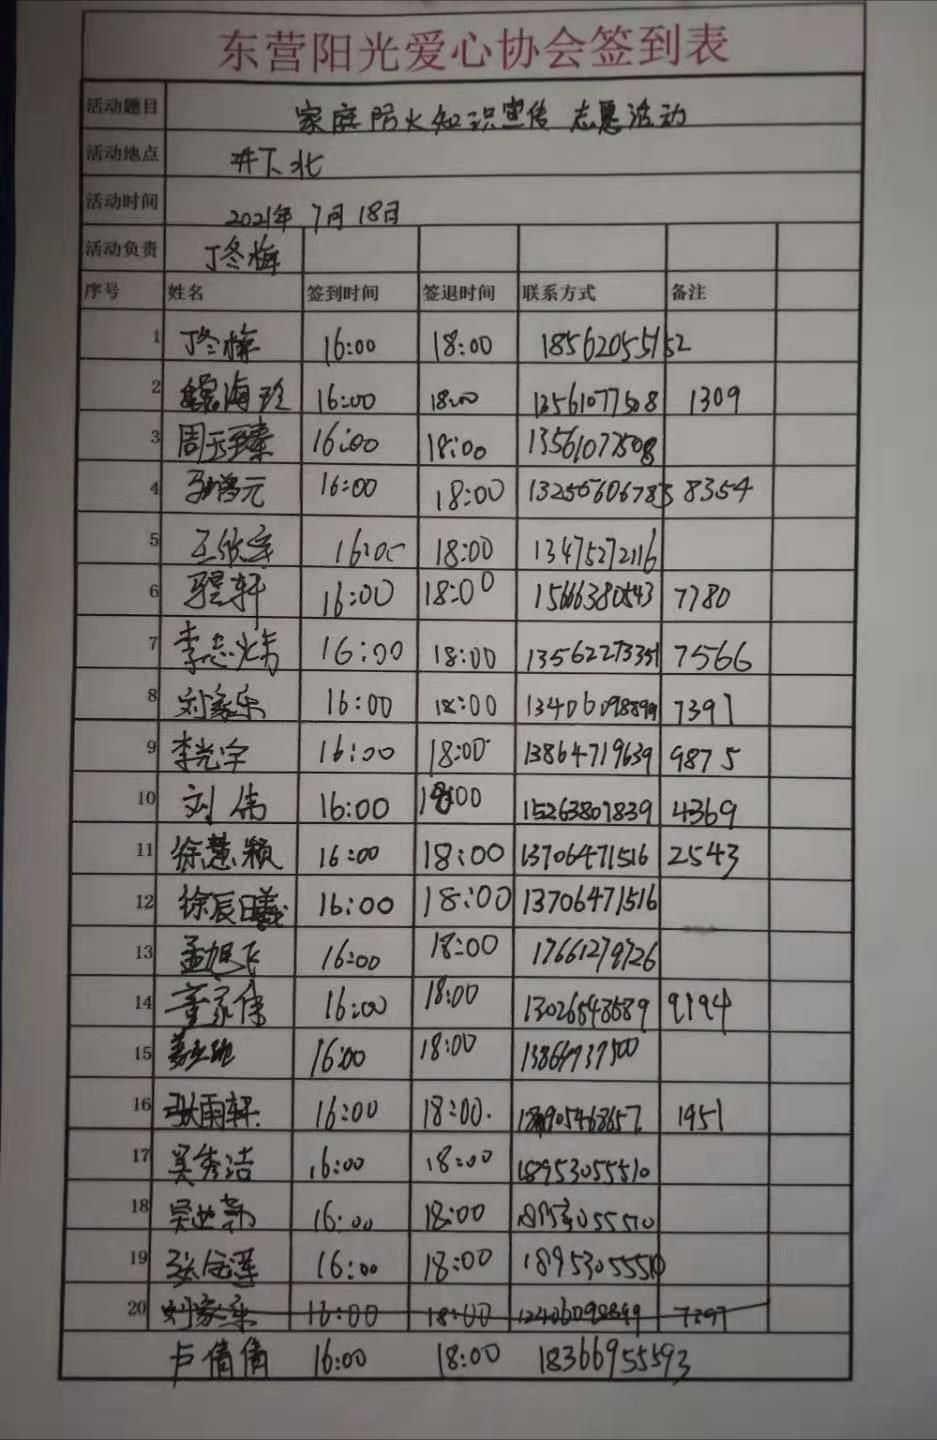 东营阳光爱心协会签到表
活动题目 家庭防火知识宣传 志愿活动
活动地点 井下北
活动时间 2021年 7月18日
活动负责 丁冬梅
序号 姓名 签到时间 签退时间 联系方式 备注
1 丁冬梅 16:00 18:00 18562055152
2 魏海珍 16:00 18:00 13561077508 1309
3 周玉臻 16:00 18:00 13561077508
4 16:00 18:00 8354
5 王欣宇 16:00 18:00 13475272116
6 16:00 18:00 15666380543 7780
7 李志炜 16:00 18:00 13562273351 7566
8 刘家乐 16:00 18:00 13406098899 7391
9 李光宇 16:00 18:00 13864719639 9875
10 刘伟 16:00 18:00 15263801839 4369
11 徐慧颖 16:00 18:00 13706471516 2543
12 徐辰曦 16:00 18:00 13706471516
13 孟旭飞 16:00 18:00 17661279726
14 董家伟 16:00 18:00 13026548589 9194
15 16:00 18:00
16 张雨轩 16:00 18:00. 1951
17 吴秀洁 16:00 18:00 18953055510
18 16:00 18:00
19 16:00 18:00 18953055510
20 刘家乐 16:00 18:00 7391
卢倩倩 16:00 18:00 18366955593